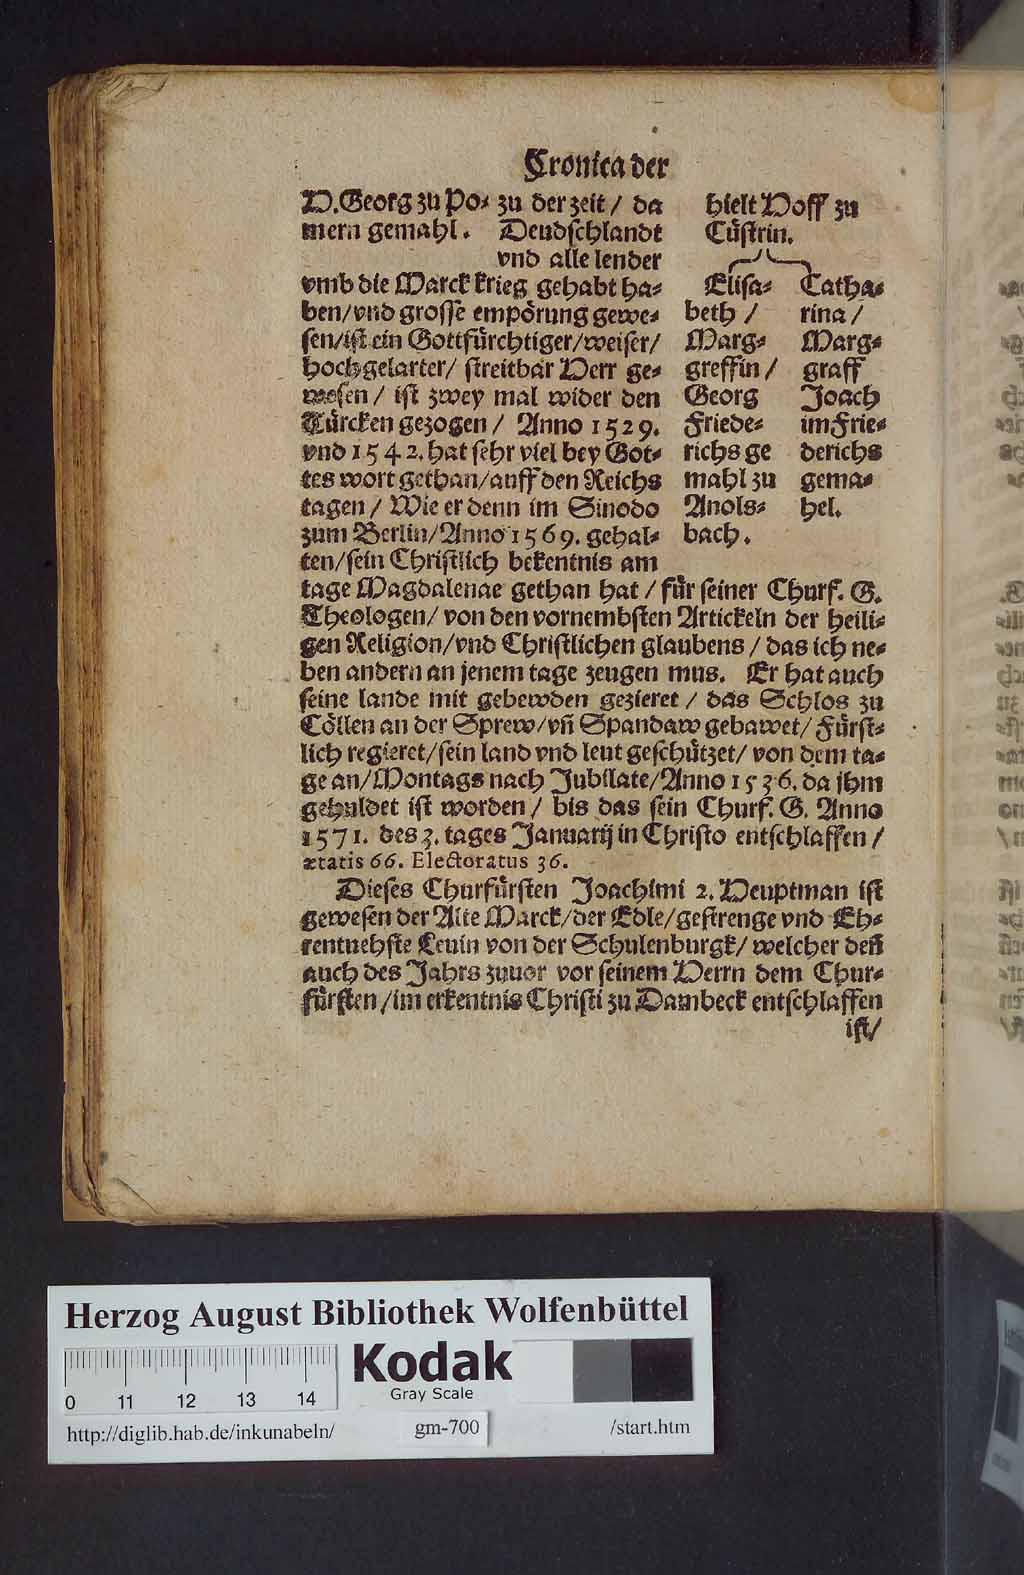 Cronica der
H. Georg zu Po⸗
mern gemahl.
zu der zeit / da
Deudschlandt
vnd alle lender
vmb die Marck krieg gehabt ha⸗
ben/vnd grosse empörung gewe⸗
sen/ist ein Gottfürchtiger/weiser/
hochgelarter/ streitbar Herr ge⸗
wesen / ist zwey mal wider den
Türcken gezogen / Anno 1529.
vnd 1542. hat sehr viel bey Got⸗
tes wort gethan/auff den Reichs
tagen / Wie er denn im Sinodo
zum Berlin/Anno 1569. gehal⸗
ten/sein Christlich bekentnis am
hielt Hoff zu
Cüstrin.
Elisa⸗
beth /
Marg⸗
greffin /
Georg
Friede⸗
richs ge
mahl zu
Anols⸗
bach.
Catha⸗
rina /
Marg⸗
graff
Joach
im Frie⸗
derichs
gema⸗
hel.
tage Magdalenae gethan hat / für seiner Churf. G.
Theologen/ von den vornembsten Artickeln der heili⸗
gen Religion/vnd Christlichen glaubens / das ich ne⸗
ben andern an jenem tage zeugen mus. Er hat auch
seine lande mit gebewden gezieret / das Schlos zu
Cöllen an der Sprew/vñ Spandaw gebawet/ Fürst⸗
lich regieret/sein land vnd leut geschützet/ von dem ta⸗
ge an/Montags nach Jubilate/Anno 1536. da jhm
gehuldet ist worden / bis das sein Churf. G. Anno
1571. des 3. tages Januarij in Christo entschlaffen /
ætatis 66. Electoratus 36.
Dieses Churfürsten Joachimi 2. Heuptman ist
gewesen der Alte Marck/der Edle/gestrenge vnd Eh⸗
rentuehste Leuin von der Schulenburgk/ welcher deñ
auch des Jahrs zuuor vor seinem Herrn dem Chur⸗
fürsten /im erkentnis Christi zu Dambeck entschlaffen
ist/
Herzog August Bibliothek Wolfenbüttel
Kodak
Gray Scale
0 11 12 13 14
http://diglib.hab.de/inkunabeln/ gm-700 /start.htm